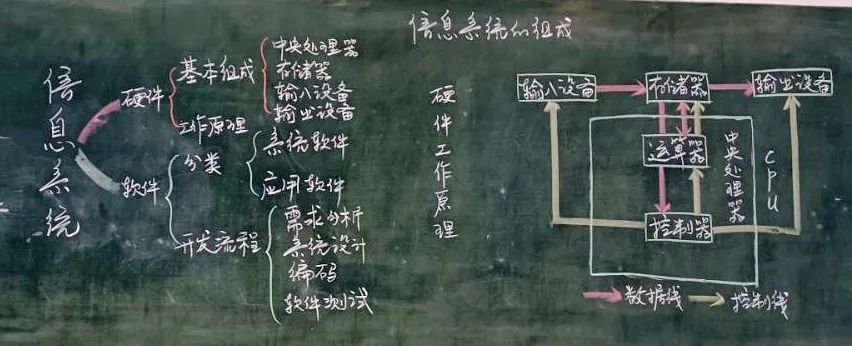 信息系统的组成
信息系统
硬件
基本组成
中央处理器
存储器
输入设备
输出设备
工作原理
软件
分类
系统软件
应用软件
开发流程
需求分析
系统设计
编码
软件测试
硬件工作原理
输入设备
存储器
输出设备
运算器
控制器
中央处理器
CPU
数据线
控制线